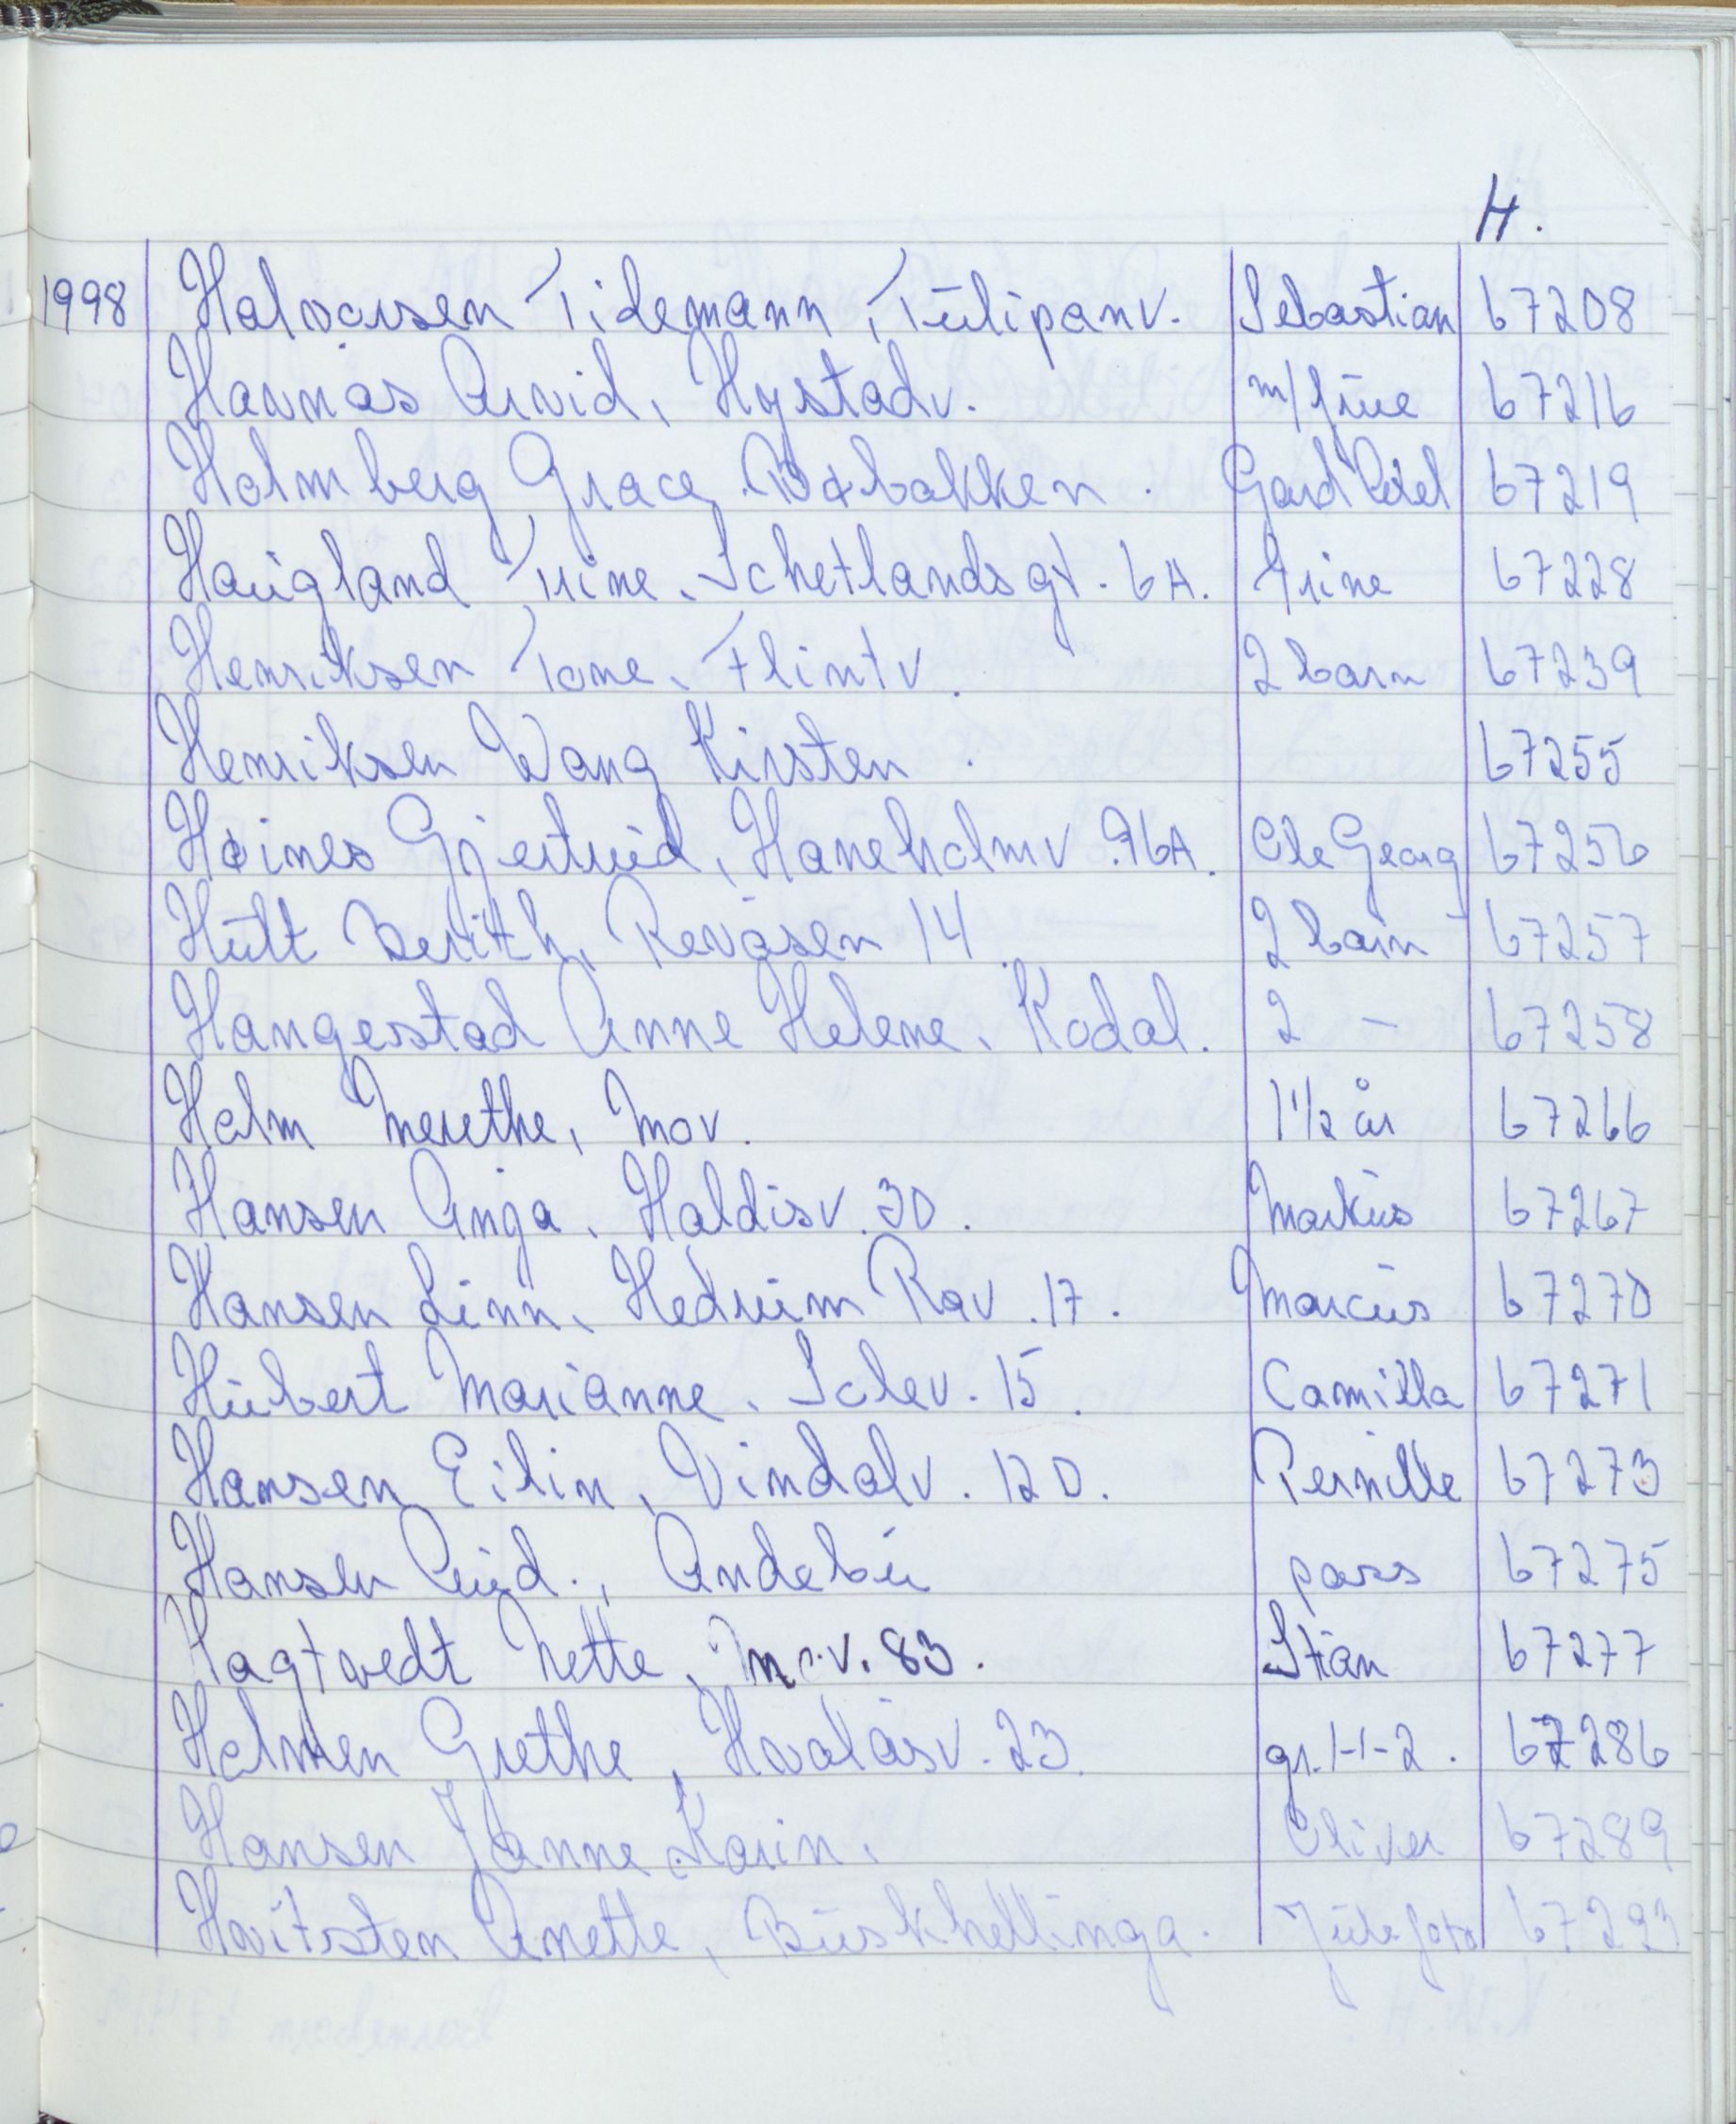 H.
1998 Halvorsen Tidemann, Tulipanv. Sebastian 67208
Havnås Arvid, Hystadv. m/frue 67216
Holmberg Grace, Bøbakken. Gard 67219
Haugland Trine, Schetlandsgt. 6A. Trine 67228
Henriksen Tone, Flintv. 2 barn 67239
Henriksen Wang Kirsten. 67255
Hoines Gjertrud, Haneholmv. 96A. Ole Georg 67256
Hult Berith, Revåsen 14. 2 barn 67257
Hangestad Anne Helene, Kodal. 2 – 67258
Holm Merethe, Mov. 1 1/2 år 67266
Hansen Anja, Haldisv. 30. Markus 67267
Hansen Linn, Hedrum Rav. 17. Marcus 67270
Hubert Marianne, Solev. 15. Camilla 67271
Hansen Eilin, Vindalv. 12 D. Pernille 67273
Hansen Aud., Andebu pass 67275
Hagtvedt Mette, Mo.v. 83. Stian 67277
Holmen Grethe, Hvalåsv. 23. gr. 1-1-2. 67286
Hansen Janne Karin. Oliver 67289
Hvitsten Anette, Buskhellinga. Julefoto 67293